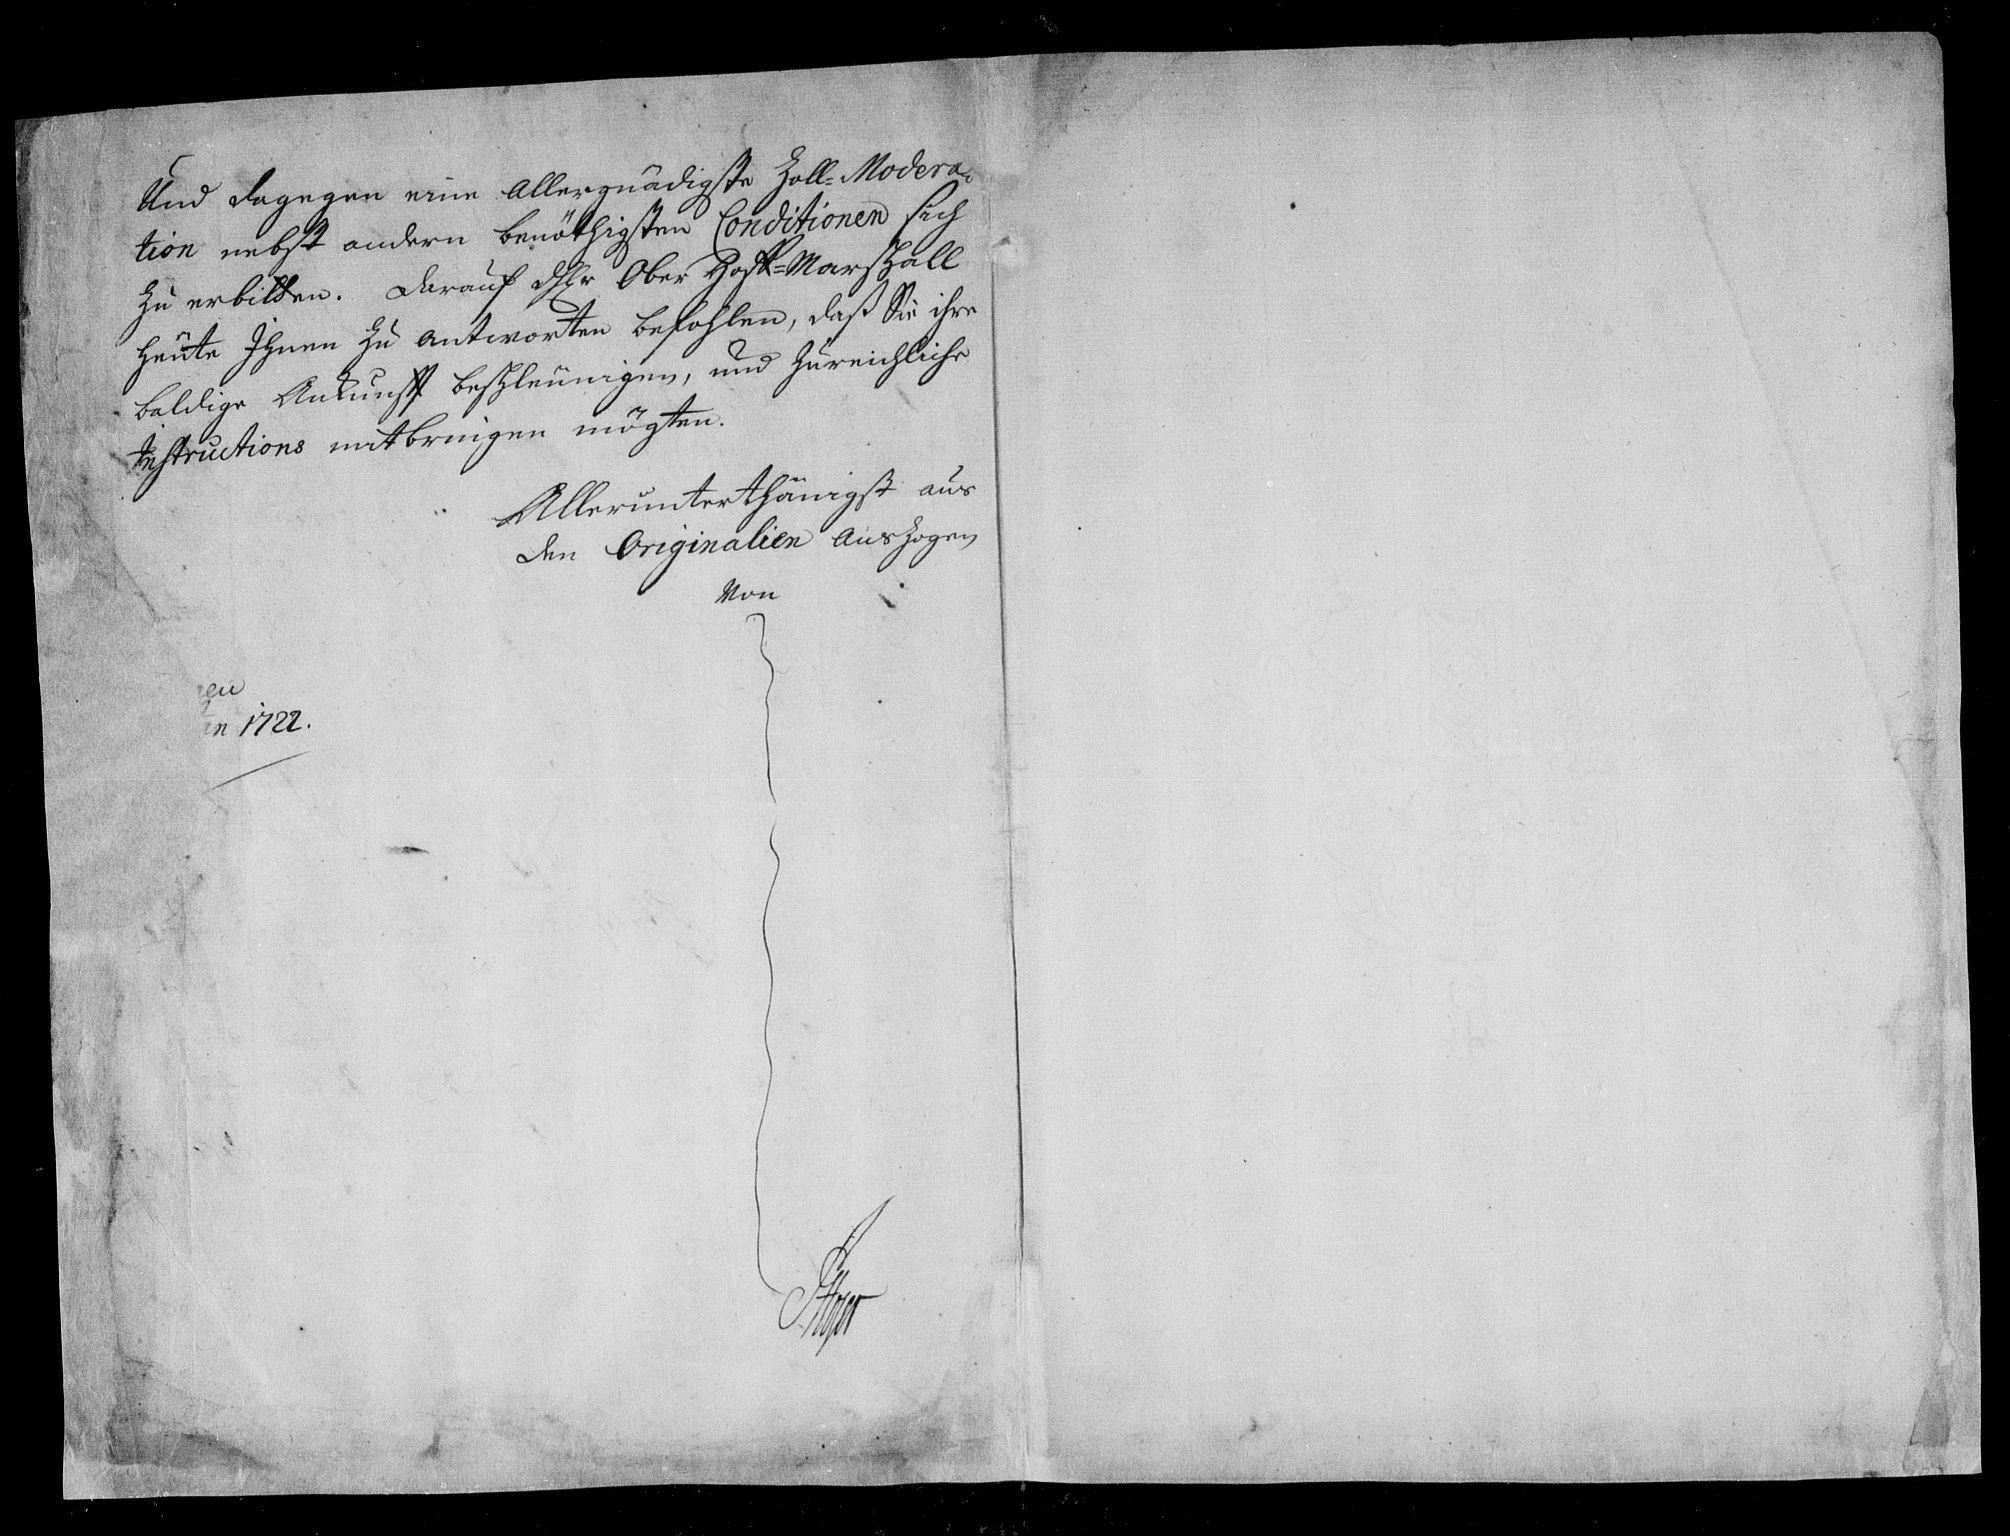 Und dagegen eine Allergnädigste Zoll-Modera-
tion nebst andern benöthigsten Conditionen sich
zu erbitten. Darauf Ober Hoff-Marschall
heüte Ihnen zu antworten befohlen, daß Sie ihre
baldige Ankunfft beschleünigen, und zureichliche
Instructions mitbringen mögten.
Allerunterthänigst aus
den Originalien auszogen
Von
1722.